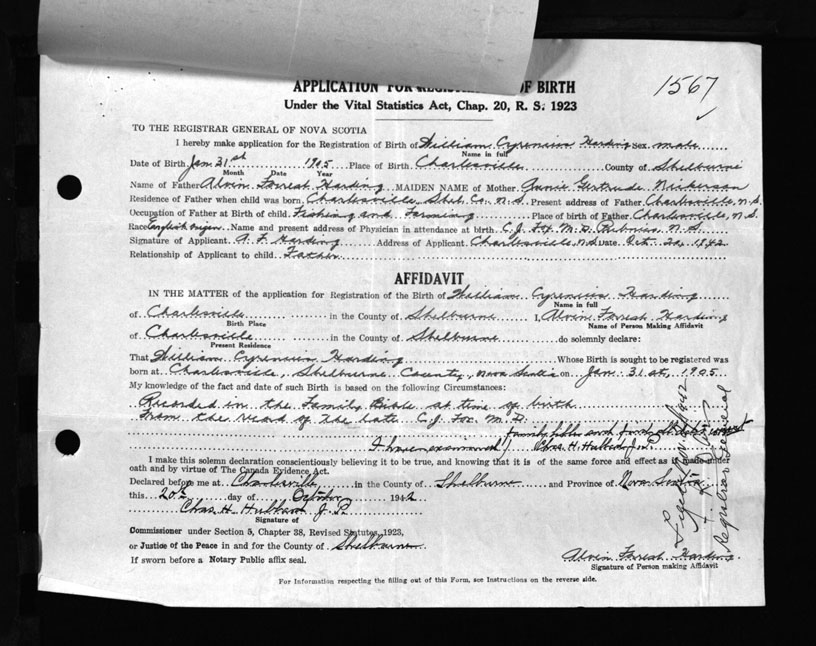 1567
APPLICATION FOR OF BIRTH
Under the Vital Statistics Act, Chap. 20, R. S. 1923
TO THE REGISTRAR GENERAL OF NOVA SCOTIA
I hereby make application for the Registration of Birth of William Cyrenius Harding Sex male
Name in full
Date of Birth Jan 31st 1905 Place of Birth Charlesville County of Shelburne
Month Date Year
Name of Father Alvin Forrest Harding MAIDEN NAME of Mother Annie Gertrude Nickerson
Residence of Father when child was born Charlesville Shel. Co. N.S. Present address of Father Charlesville, N.S.
Occupation of Father at Birth of child Fishing and Farming Place of birth of Father Charlesville, N.S.
Race English origin Name and present address of Physician in attendance at birth C. J. Fox M.D. Pubnico, N.S.
Signature of Applicant A. F. Harding Address of Applicant Charlesville, N.S. Date Oct. 20, 1942
Relationship of Applicant to child Father
AFFIDAVIT
IN THE MATTER of the application for Registration of the Birth of William Cyrenius Harding
Name in full
of Charlesville in the County of Shelburne I, Alvin Forrest Harding
Birth Place Name of Person Making Affidavit
of Charlesville in the County of Shelburne do solemnly declare:
Present Residence
That William Cyrenius Harding Whose Birth is sought to be registered was
born at Charlesville, Shelburne County, Nova Scotia on Jan. 31st, 1905
My knowledge of the fact and date of such Birth is based on the following Circumstances:
Recorded in the Family Bible at time of birth
From the record of the late C. J. Fox M.D.
family bible and
I have examined Chas. H. Hubbard J.P.
I make this solemn declaration conscientiously believing it to be true, and knowing that it is of the same force and effect as if made under
oath and by virtue of The Canada Evidence Act.
Declared before me at Charlesville in the County of Shelburne and Province of Nova Scotia
this 20th day of October 1942
Chas. H. Hubbard J.P.
Signature of
Commissioner under Section 5, Chapter 38, Revised Statutes, 1923,
or Justice of the Peace in and for the County of Shelburne
If sworn before a Notary Public affix seal.
Alvin Forrest Harding
Signature of Person making Affidavit
For Information respecting the filling out of this Form, see Instructions on the reverse side.
Registrar General